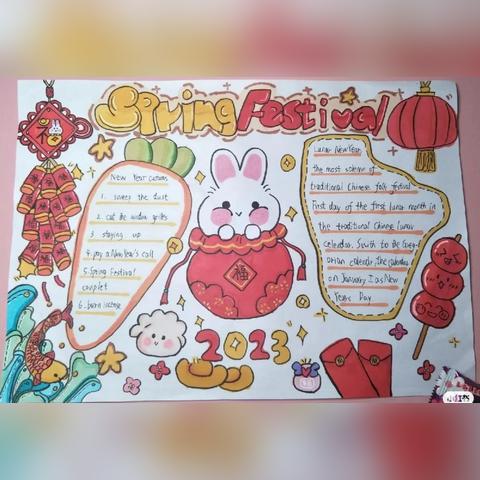 Spring Festival
福
New Year Customs
1. sweep the dust
2.
3. staying up
4. pay a New Year's call
5. Spring Festival
couplet
6. burn incense
福
Lunar New Year,
the most scheme of
traditional Chinese folk festival
First day of the first lunar month in
the traditional Chinese lunar
calendar.
on January 1 as New
Years Day
2023
小红书